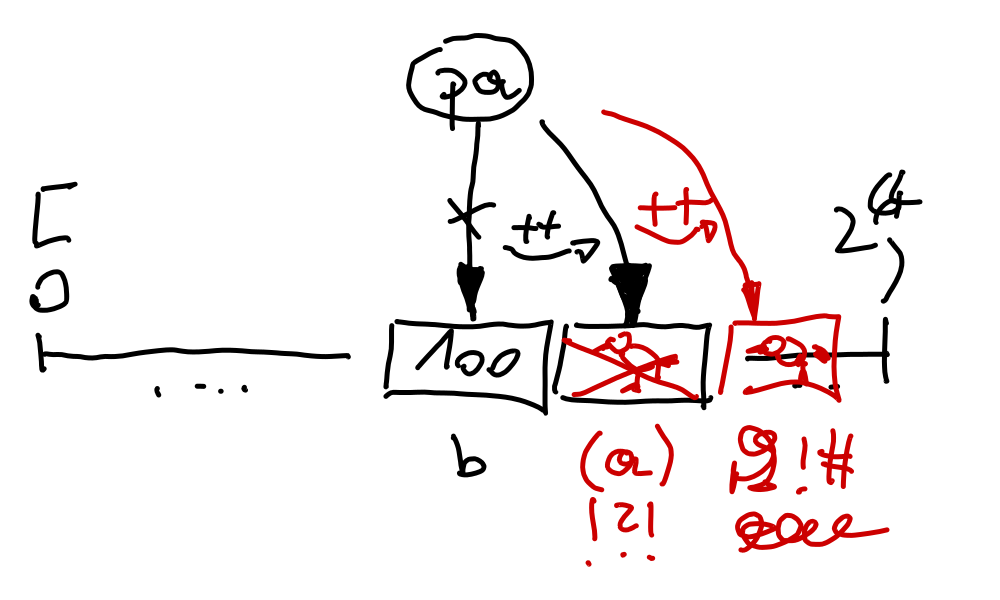 pa
++
++
[0
2^64)
100
b
(a)
!?!
!#